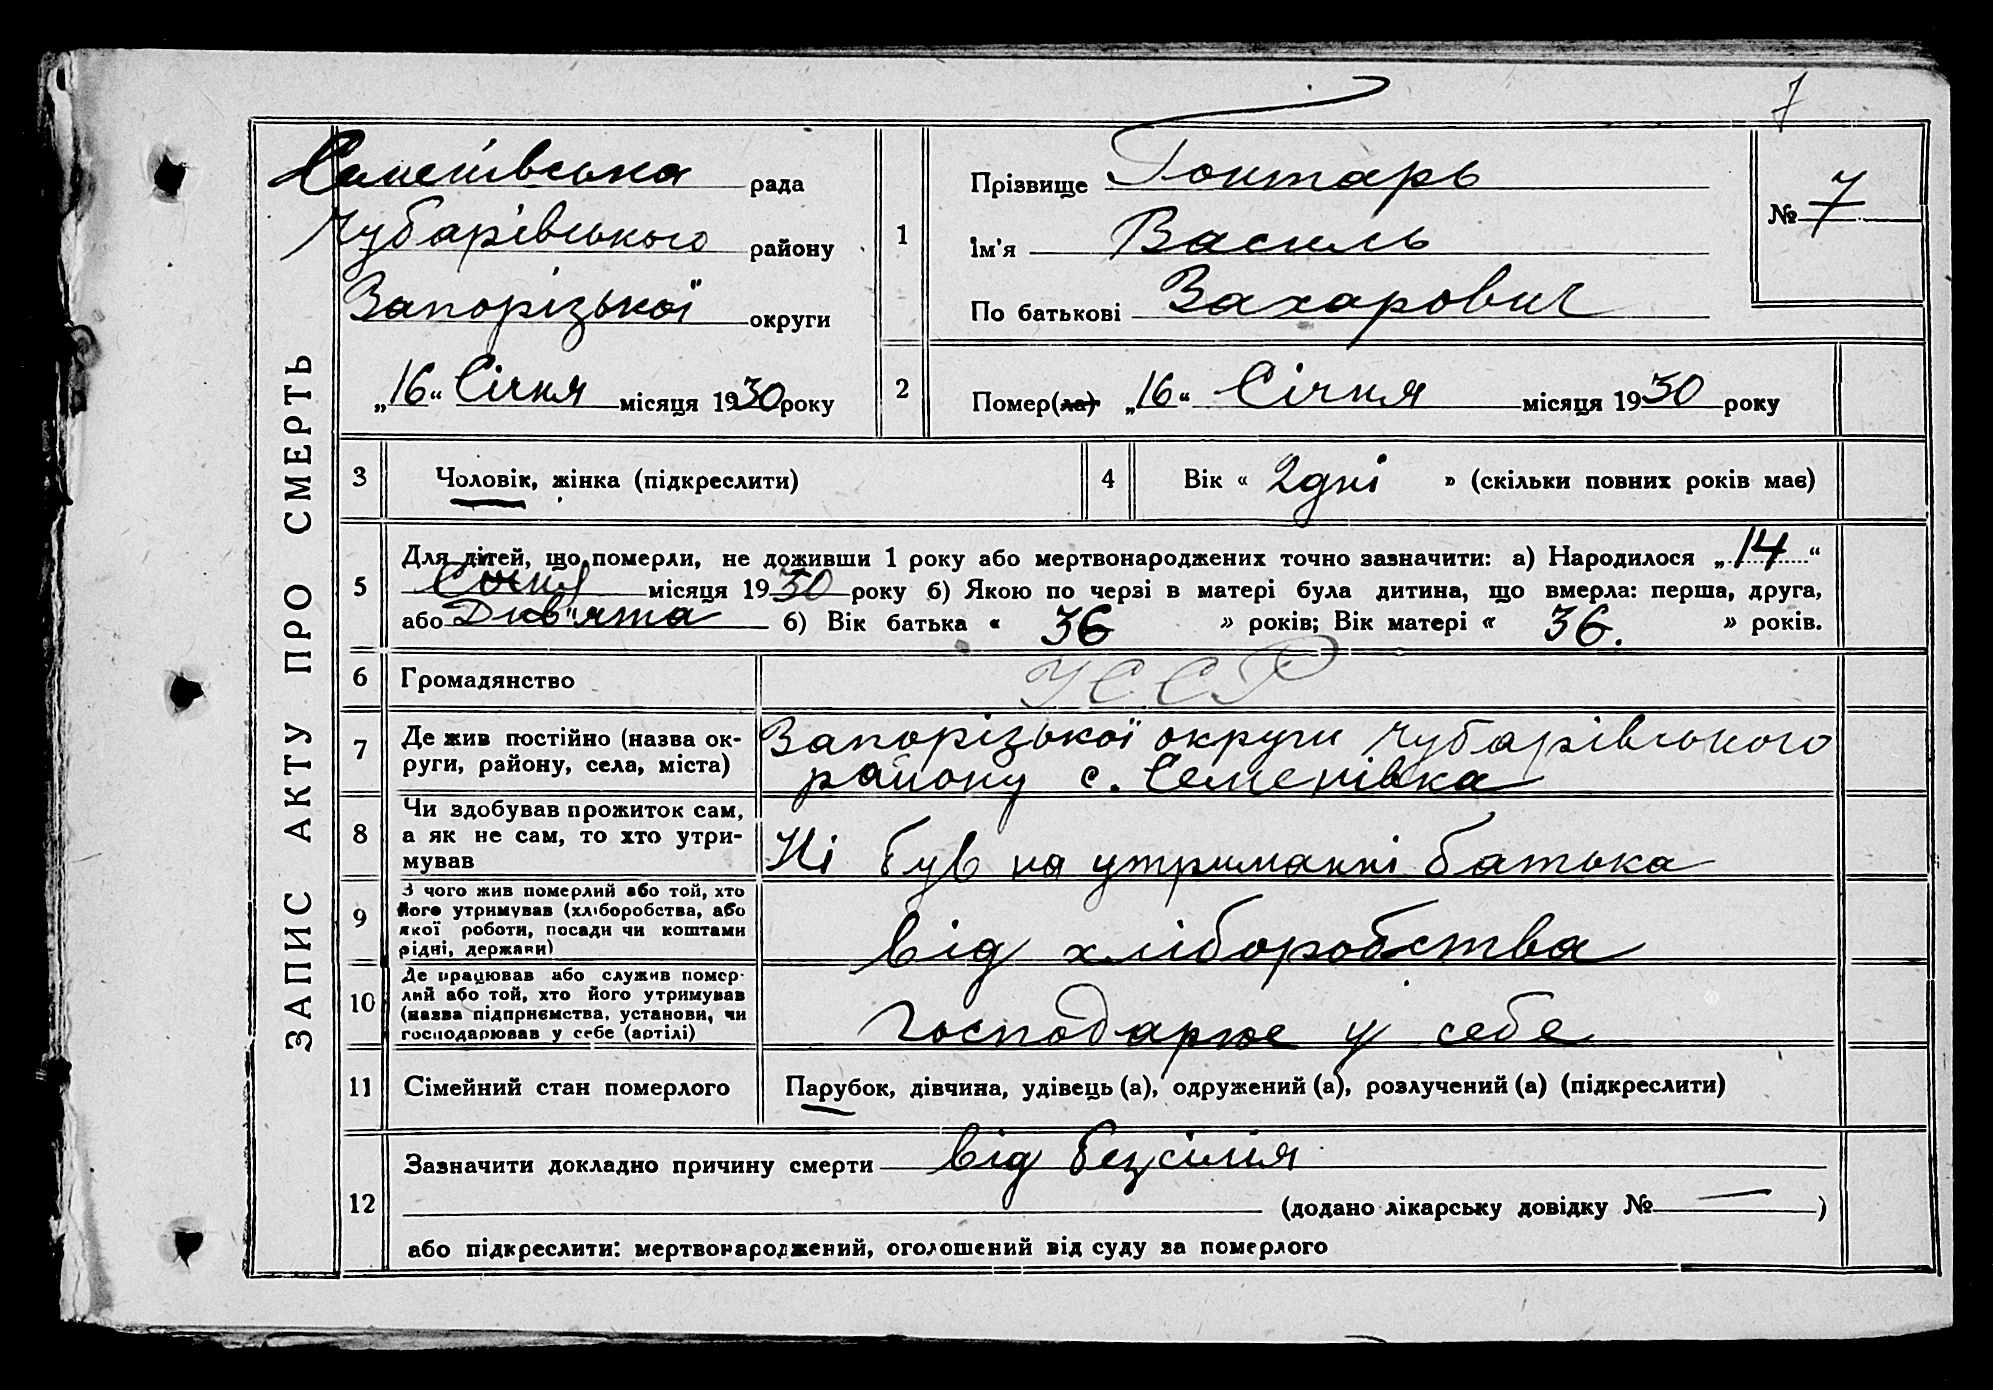 7
ЗАПИС АКТУ ПРО СМЕРТЬ
Семенівська рада
Чубарівського району
Запорізької округи
„16“ Січня місяця 1930 року
1
Прізвище Гонтарь
Ім'я Василь
По батькові Захарович
№ 7
2
Помер(ла) „16“ Січня місяця 1930 року
3
Чоловік, жінка (підкреслити)
4
Вік « 2 дні » (скільки повних років має)
5
Для дітей, що померли, не доживши 1 року або мертвонароджених точно зазначити: а) Народилося „14“
Січня місяця 1930 року б) Якою по черзі в матері була дитина, що вмерла: перша, друга,
або Дев'ята б) Вік батька « 36 » років; Вік матері « 36. » років.
6
Громадянство
УССР
7
Де жив постійно (назва ок-
руги, району, села, міста)
Запорізької округи Чубарівського
району с. Семенівка
8
Чи здобував прожиток сам,
а як не сам, то хто утри-
мував
Ні був на утриманні батька
9
З чого жив померлий або той, хто
його утримував (хліборобства, або
якої роботи, посади чи коштами
рідні, держави)
від хліборобства
10
Де працював або служив помер-
лий або той, хто його утримував
(назва підприємства, установи, чи
господарював у себе (артілі)
господарює у себе
11
Сімейний стан померлого
Парубок, дівчина, удівець (а), одружений (а), розлучений (а) (підкреслити)
12
Зазначити докладно причину смерти від безсилія
(додано лікарську довідку № — )
або підкреслити: мертвонароджений, оголошений від суду за померлого